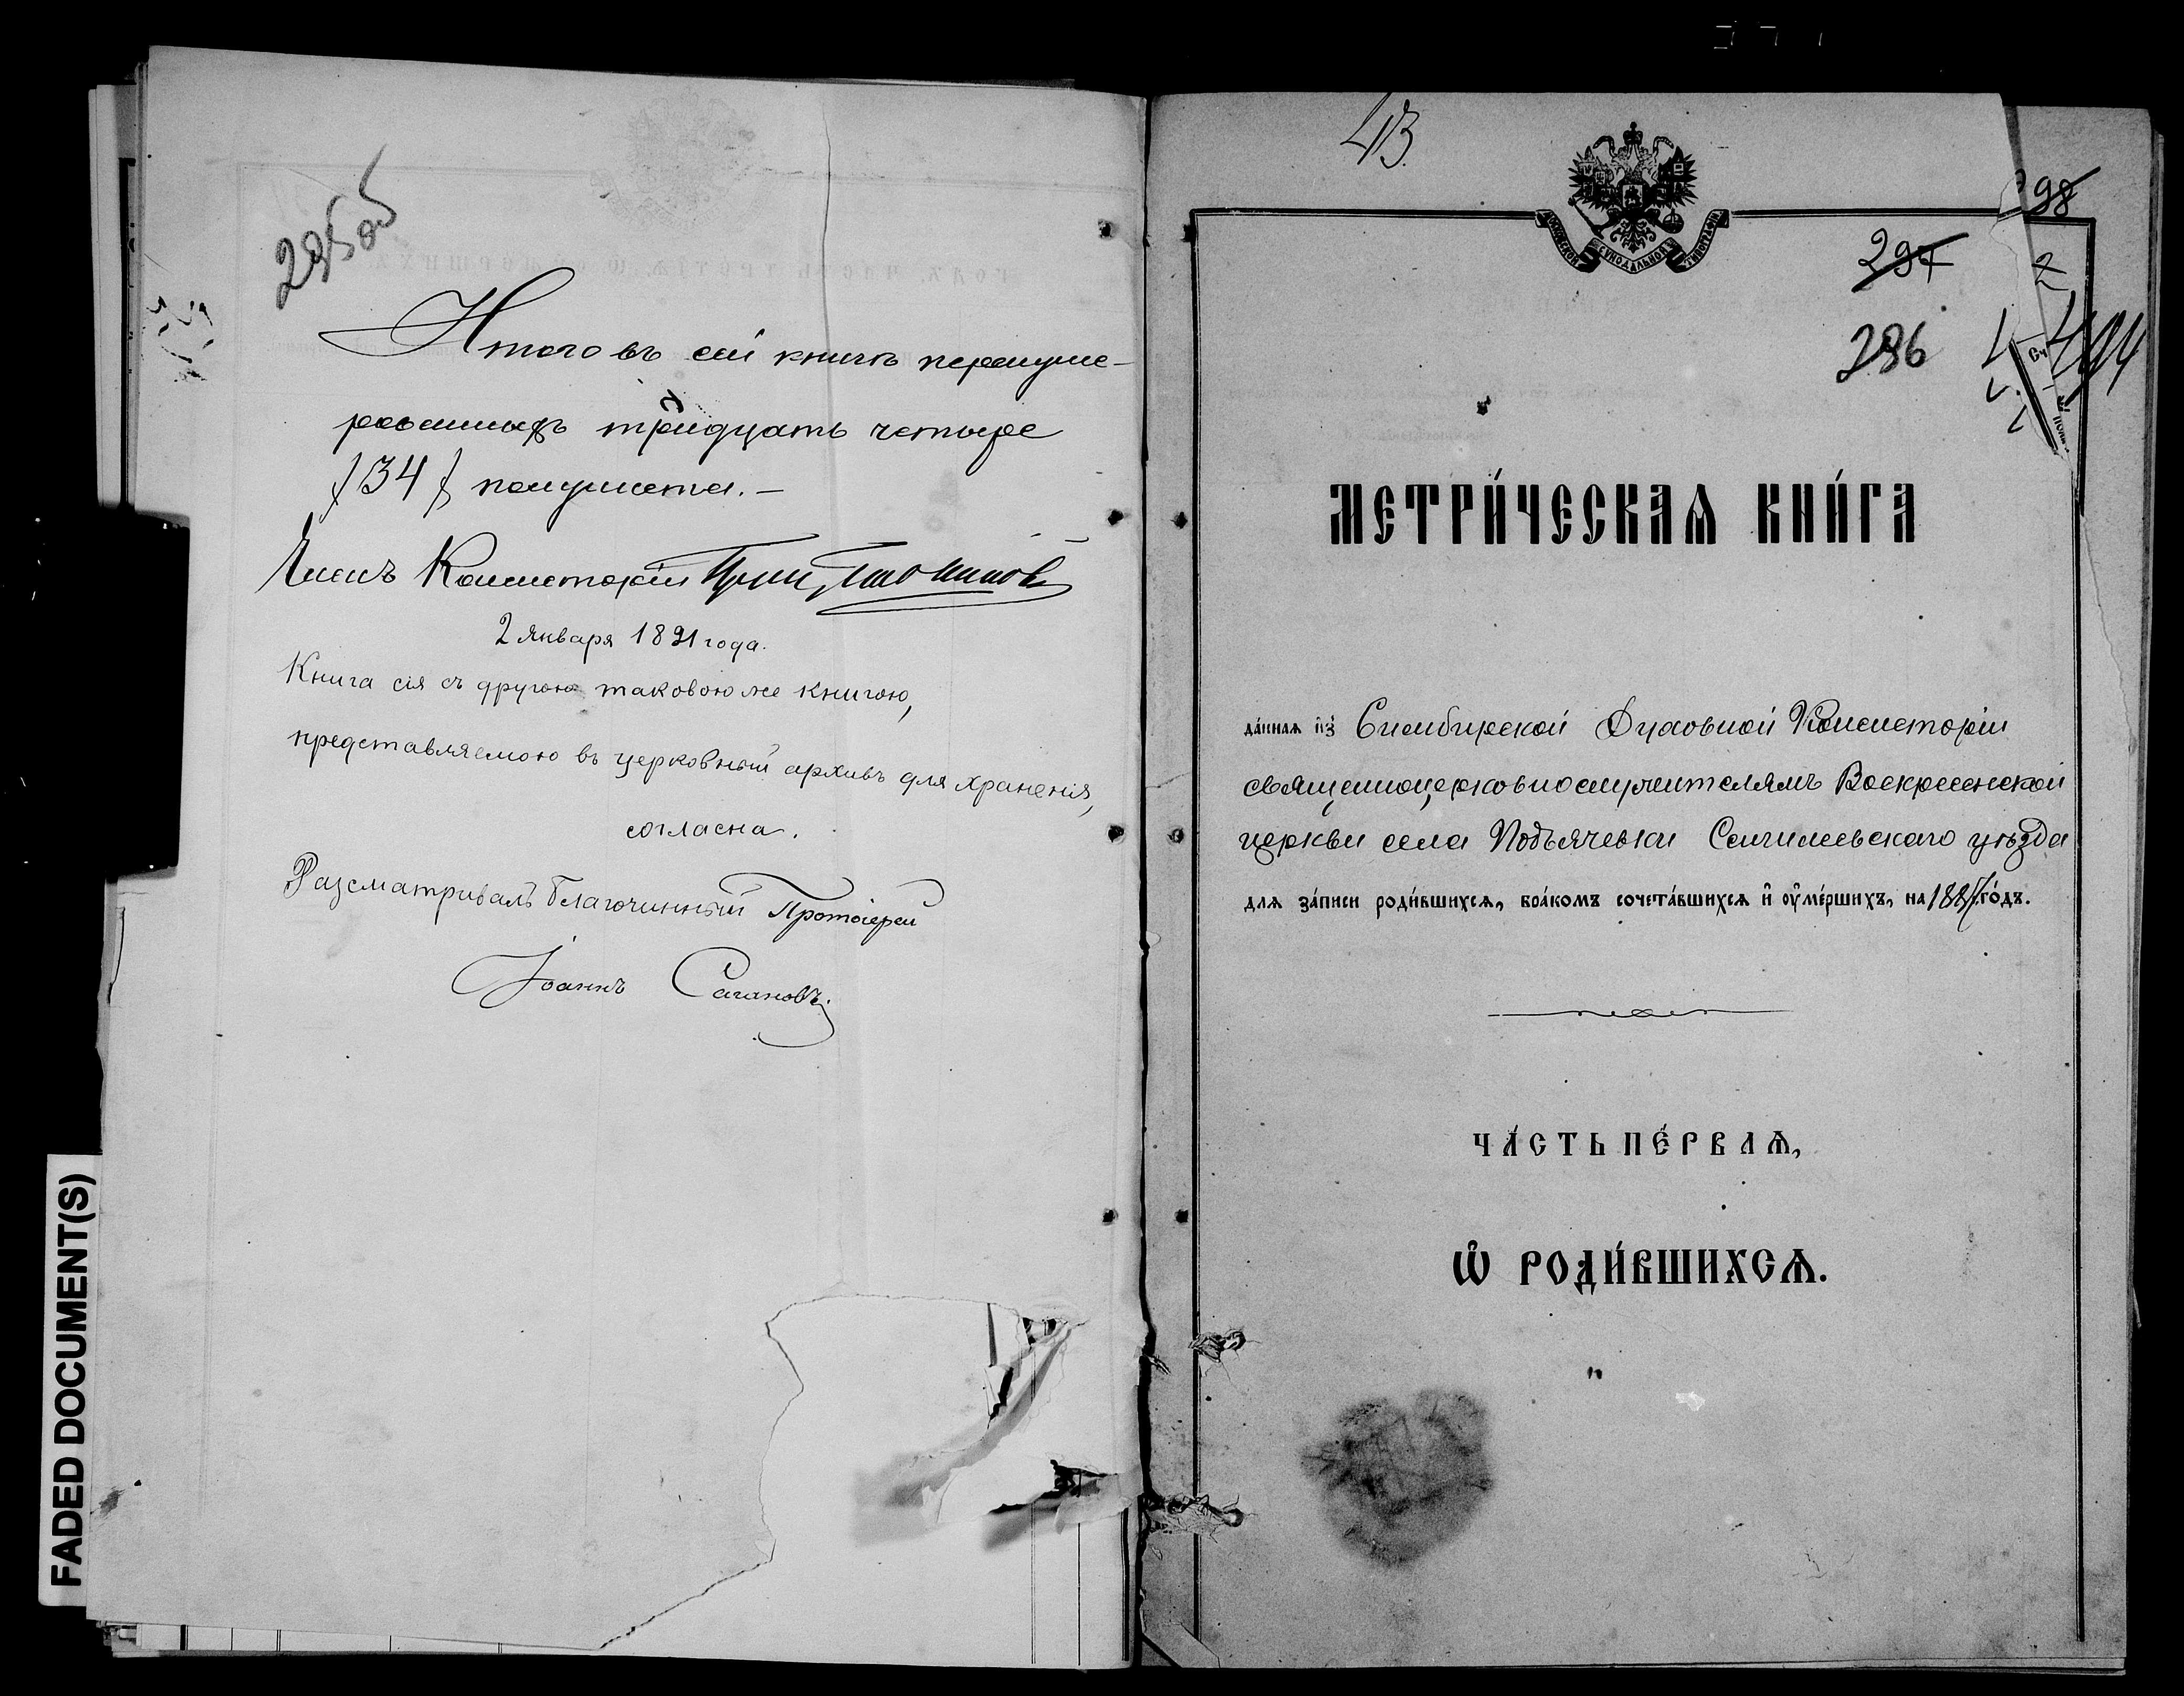 295об
Итого въ сей книгѣ перенуме-
рованныхъ тридцать четыре
/34/ полулиста.—
Членъ Консисторіи
2 Января 1891 года.
Книга сія съ другою таковою же книгою,
представляемою въ церковный архивъ для храненія,
согласна.
Разсматривалъ благочинный Протоіерей
Іоаннъ Сагановъ
43.
98
МОСКОВСКОЙ СѴНОДАЛЬНОЙ ТИПОГРАФІИ
297
2
296
494
МЕТРИ́ЧЕСКАѦ КНИ́ГА
да́ннаѧ и҆з̾ Симбирской Духовной Консисторіи
священноцерковнослужителямъ Воскресенской
церкви села Подъячевки Сенгилеевскаго уѣзда
длѧ за́писи роди́вшихсѧ, бра́комъ сочета́вшихсѧ и҆ оу҆ме́ршихъ, на го́дъ.
ЧА́СТЬ ПЕ́РВАѦ,
Ѡ҆ РОДИ́ВШИХСѦ.
FADED DOCUMENT(S)